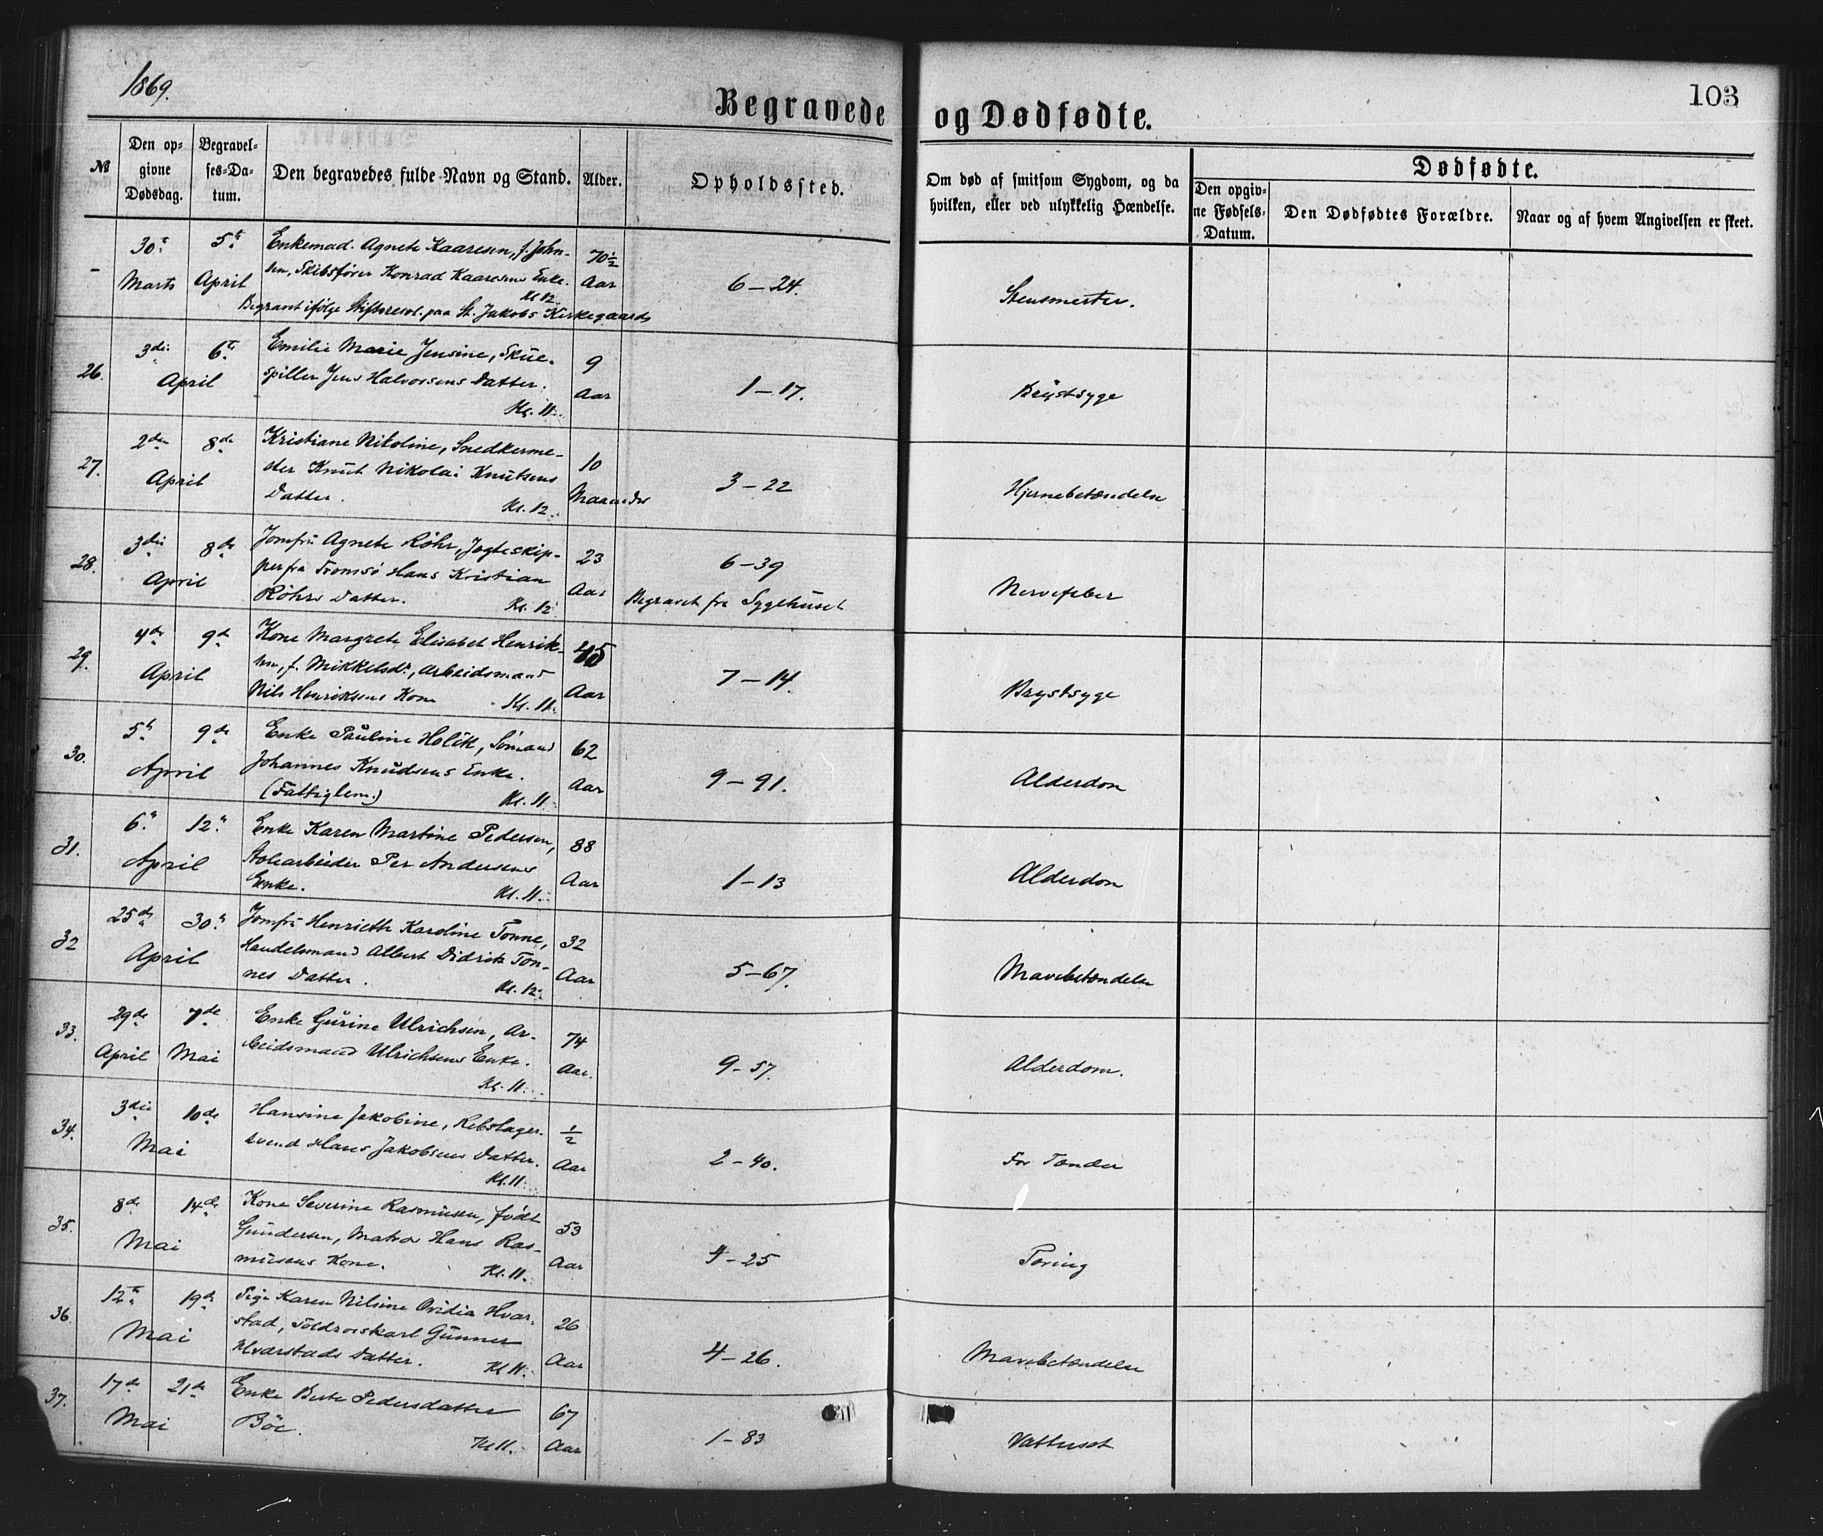 1869.
103
Begravede og Dødfødte.
№
Den opgivne Dødsdag.
Begravelses-Datum.
Den begravedes fulde Navn og Stand.
Alder.
Opholdssted.
Om død af smitsom Sygdom, og da hvilken, eller ved ulykkelig Hændelse.
Dødfødte.
Den opgivne Fødsels-Datum.
Den Dødfødtes Forældre.
Naar og af hvem Angivelsen er skeet.
- 30te Marts 5te April
Enkemad. Agnete Kaaresen, f. John-
sen, Skibsfører Konrad Kaaresens Enke.
Kl 12.
Begravet ifølge Stiftsresol. paa St. Jakobs Kirkegaard
70½ Aar
6 – 24.
26. 3die 6te April
Emilie Marie Jensine, Skue-
spiller Jens Halvorsens Datter.
Kl. 11.
9 Aar
1 – 17.
Brystsyge
27. 2den 8de April
Kristiane Nikoline, Snedkerme-
ster Knut Nikolai Knutsens
Datter. Kl. 12.
10 Maaneder
3 – 22
Hjernebetændelse
28. 3die 8de April
Jomfru Agnete Røhr, Jagteskip-
per fra Tromsö Hans Kristian
Röhrs Datter. Kl. 12
23 Aar
6 – 39
Begravet fra Sygehuset
Nervefeber
29. 4de 9de April
Kone Margrete Elisabet Henrik-
sen, f. Mikkelsdr, Arbeidsmand
Nils Henriksens Kone Kl. 11.
45 Aar
7 – 14.
Brystsyge
30. 5te 9de April
Enke Pauline Holck, Sømand
Johannes Knudsens Enke.
(Fattiglem.) Kl. 11.
62 Aar
9 – 91.
Alderdom
31. 6te 12te April
Enke Karen Martine Pedersen,
Per Andersens
Enke. Kl. 11.
88 Aar
1 – 13
Alderdom
32 25de 30te April
Jomfru Henriette Karoline Tonne,
Handelsmand Albert Didrik Ton-
nes Datter. Kl. 12.
32 Aar
5 – 67.
Mavebetændelse
33. 29de April 7de Mai
Enke Gurine Ulrichsen, Ar-
beidsmand Ulrichsens Enke.
Kl. 11.
74 Aar.
9 – 57.
Alderdom.
34. 3die 10de Mai
Hansine Jakobine, Rebslager-
svend Hans Jakobsens Datter.
Kl. 11.
½ Aar
2 – 40.
For Tænder
35. 8de 14de Mai
Kone Severine Rasmusen, født
Gundersen, Matros Hans Ras-
musens Kone. Kl. 11.
53 Aar
4 – 25
Tæring
36. 12te 19de Mai
Pige Karen Nilsine Ovidia Hvar-
stad, Toldroerskarl Gunner
Hvarstads Datter. Kl 11.
26 Aar
4 – 26.
Mavebetændelse
37. 17de 21de Mai
Enke Berte Pedersdatter
Böe. Kl 11.
67 Aar
1 – 83
Vattersot